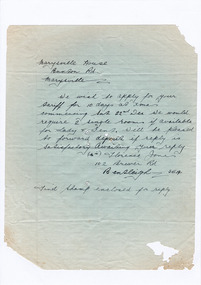 Marysville House
Rd.
Marysville
We wish to apply for your
tariff for 10 days at Xmas
commencing Sat 22nd Dec. We would
require 2 single rooms if available
for lady & Will be pleased
to forward deposit if reply is
satisfactory. Awaiting your reply
Florence Jones
102 Brewer Rd
Bentleigh
Find stamp enclosed for reply